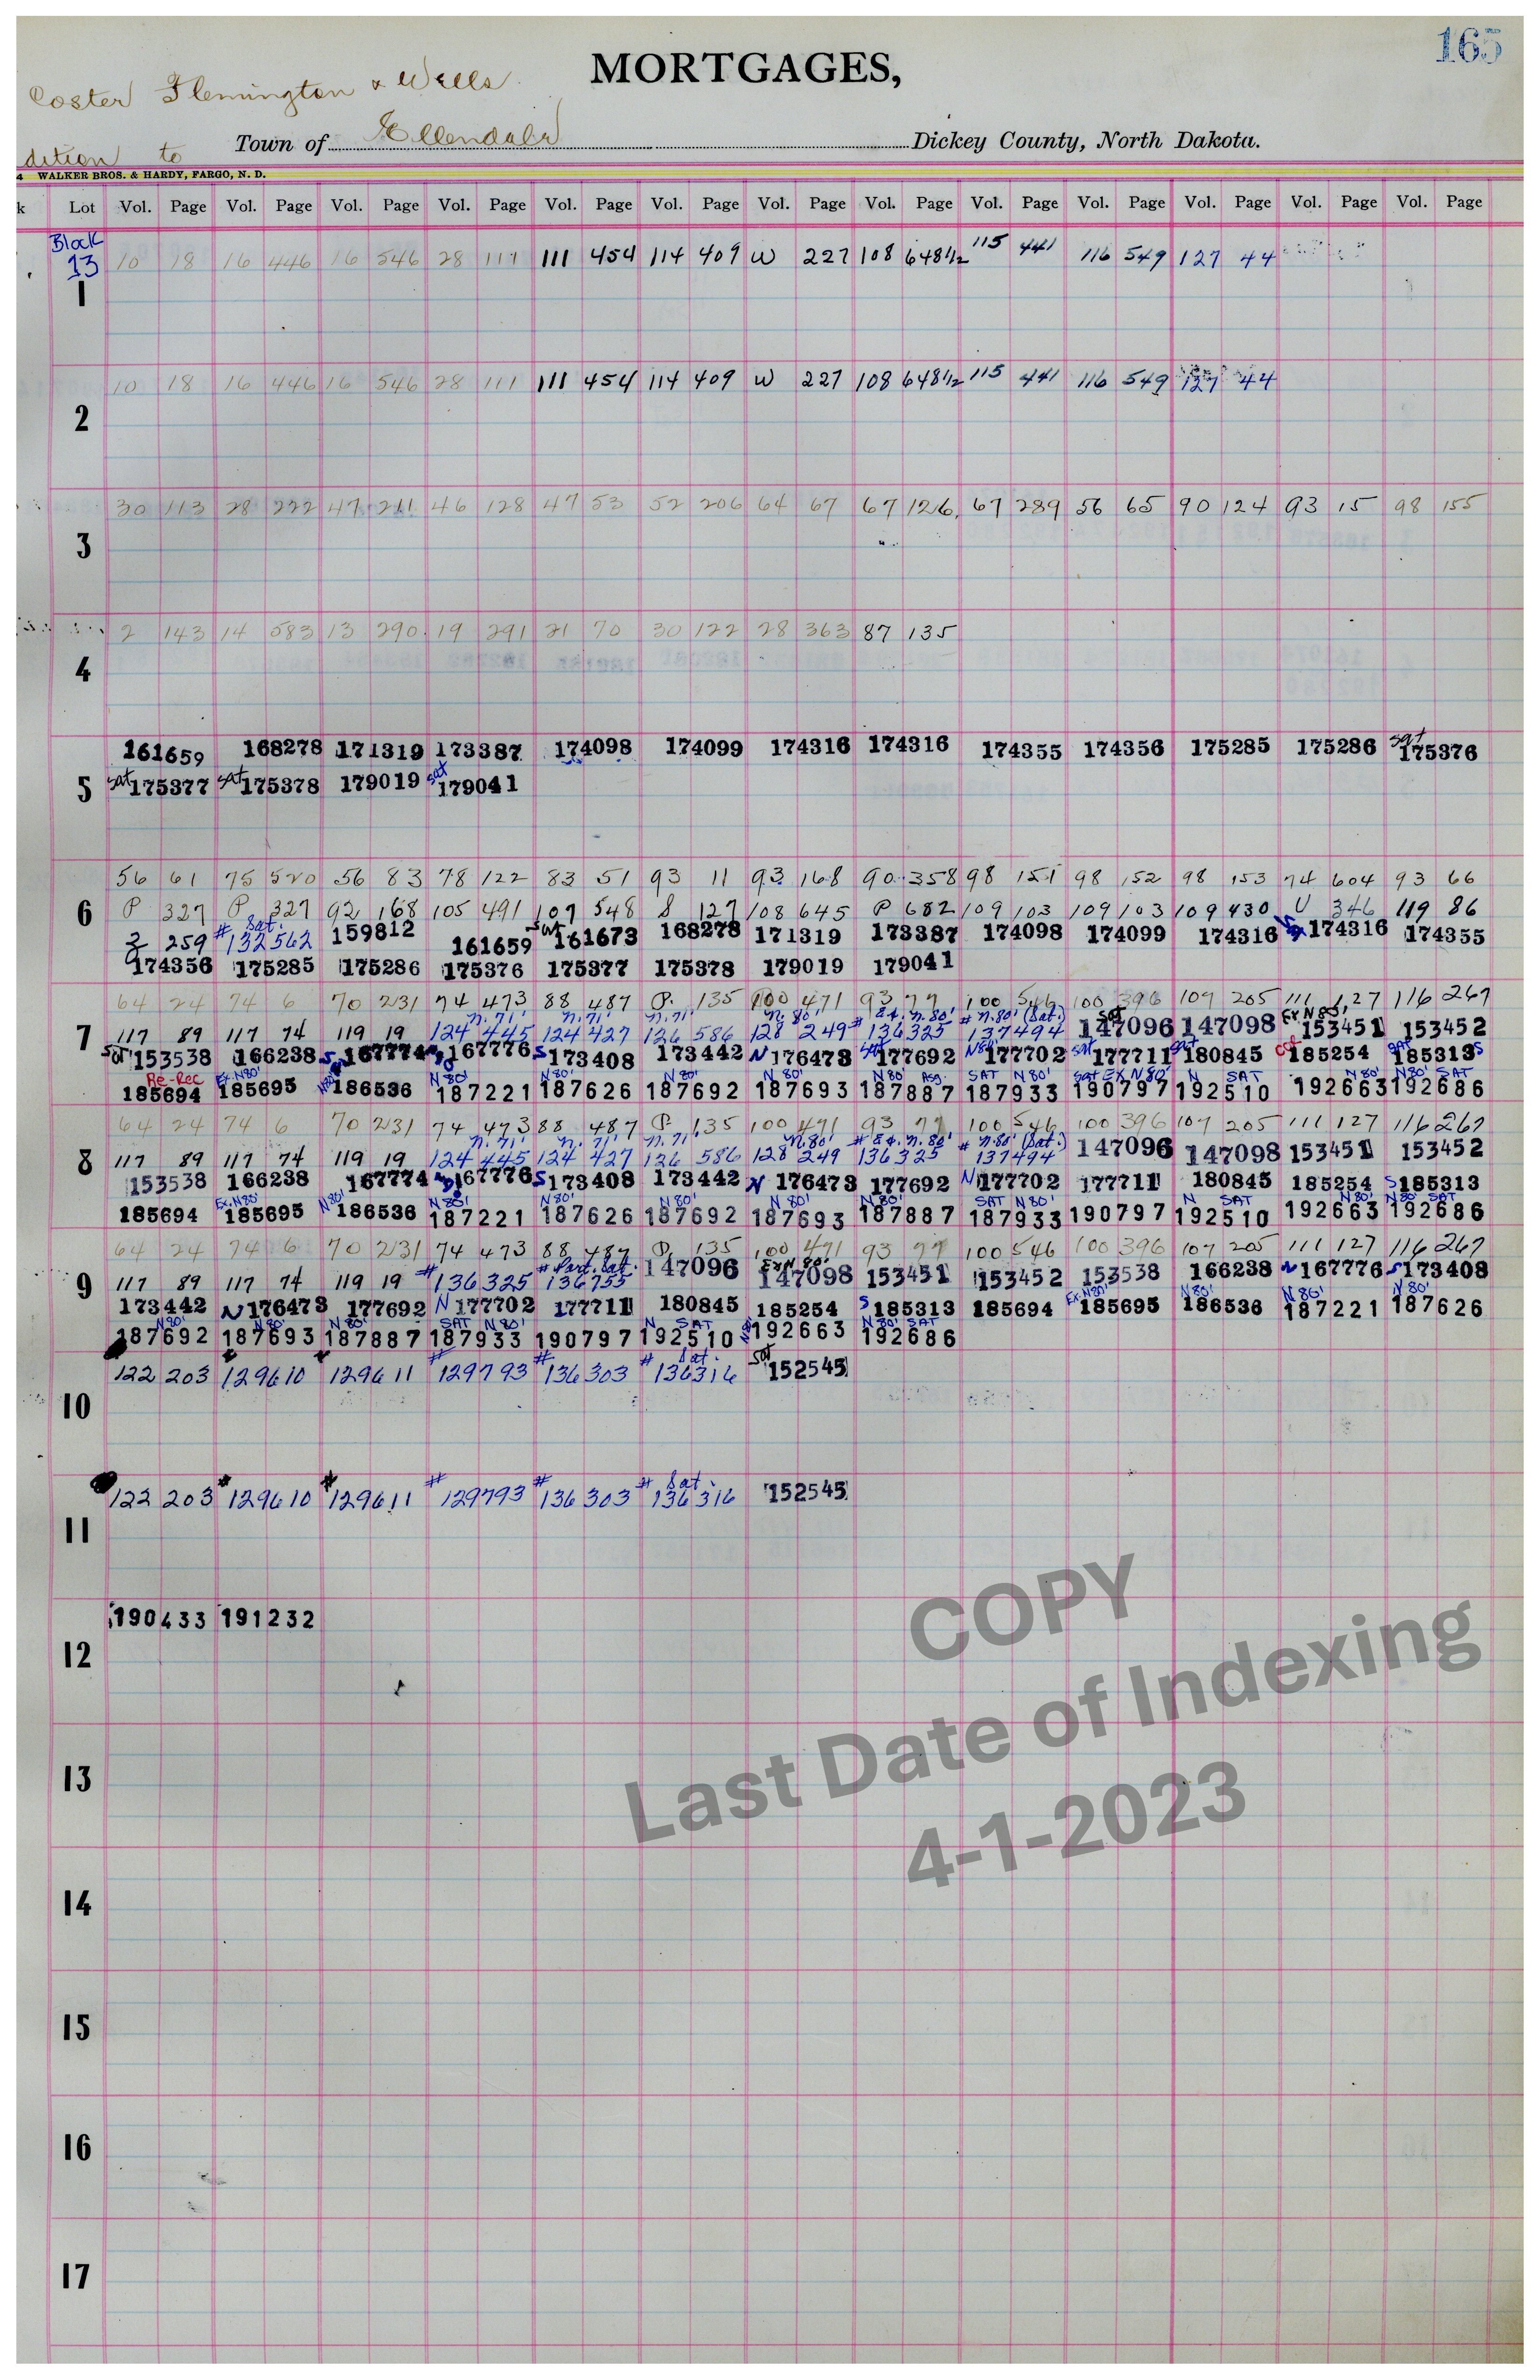 165
MORTGAGES,
Coster Flemington & Wells
dition to Town of Ellendale Dickey County, North Dakota.
4 WALKER BROS. & HARDY, FARGO, N. D.
k Lot Vol. Page Vol. Page Vol. Page Vol. Page Vol. Page Vol. Page Vol. Page Vol. Page Vol. Page Vol. Page Vol. Page Vol. Page Vol. Page
Block
13 10 18 16 446 16 546 28 111 111 454 114 409 W 227 108 648½ 115 441 116 549 127 44
1
10 18 16 446 16 546 28 111 111 454 114 409 W 227 108 648½ 115 441 116 549 127 44
2
30 113 28 222 47 211 46 128 47 53 52 206 64 67 67 126 67 289 56 65 90 124 93 15 98 155
3
2 143 14 583 13 290 19 291 21 70 30 122 28 363 87 135
4
161659 168278 171319 173387 174098 174099 174316 174316 174355 174356 175285 175286 sat 175376
5 sat 175377 sat 175378 179019 sat 179041
56 61 75 520 56 83 78 122 83 51 93 11 93 168 90 358 98 151 98 152 98 153 74 604 93 66
6 P 327 P 327 92 168 105 491 107 548 S 127 108 645 P 682 109 103 109 103 109 430 U 346 119 86
259 # Sat. 132562 159812 161659 sat 161673 168278 171319 173387 174098 174099 174316 174316 174355
174356 175285 175286 175376 175377 175378 179019 179041
64 24 74 6 70 231 74 473 88 487 P. 135 100 471 93 77 100 546 100 396 107 205 111 127 116 267
n. 71' n. 71' n. 71' n. 80' # E4. n. 80' # n. 80' (Sat.) Sat Ex N 80'
7 117 89 117 74 119 19 124 445 124 427 126 586 128 249 136325 137494 147096 147098 153451 153452
Sat 153538 166238 167774 167776 S 173408 173442 N 176473 sat 177692 N80' 177702 sat 177711 sat 180845 185254 SAT 185313 S
Re-Rec Ex. N80' N80' N 80' N 80' N 80' N 80' N 80' Asg. SAT N 80' Sat EX N 80' N SAT N 80' N 80' SAT
185694 185695 186536 187221 187626 187692 187693 187887 187933 190797 192510 192663 192686
64 24 74 6 70 231 74 473 88 487 P. 135 100 471 93 77 100 546 100 396 107 205 111 127 116 267
n. 71' n. 71' n. 71' n. 80' # E4. n. 80' # n. 80' (Sat.)
8 117 89 117 74 119 19 124 445 124 427 126 586 128 249 136325 137494 147096 147098 153451 153452
153538 166238 167774 167776 S 173408 173442 N 176473 177692 N 177702 177711 180845 185254 S 185313
Ex. N80' N80' N 80' N 80' N 80' N 80' N 80' SAT N 80' N SAT N 80' N 80' SAT
185694 185695 186536 187221 187626 187692 187693 187887 187933 190797 192510 192663 192686
64 24 74 6 70 231 74 473 88 487 P. 135 100 471 93 77 100 546 100 396 107 205 111 127 116 267
9 117 89 117 74 119 19 # 136325 # Part. Sat. 136755 147096 Ex N 80' 147098 153451 153452 153538 166238 N 167776 S 173408
173442 N 176473 177692 N 177702 177711 180845 185254 S 185313 185694 Ex. N80' 185695 N 80' 186536 N 80' 187221 N 80' 187626
N 80' N 80' N 80' SAT N 80' N SAT N 80' N 80' SAT
187692 187693 187887 187933 190797 192510 192663 192686
122 203 # 129610 # 129611 # 129793 # 136303 # Sat. 136316 Sat 152545
10
122 203 # 129610 # 129611 # 129793 # 136303 # Sat. 136316 152545
11
190433 191232
12
13
14
15
16
17
COPY
Last Date of Indexing
4-1-2023